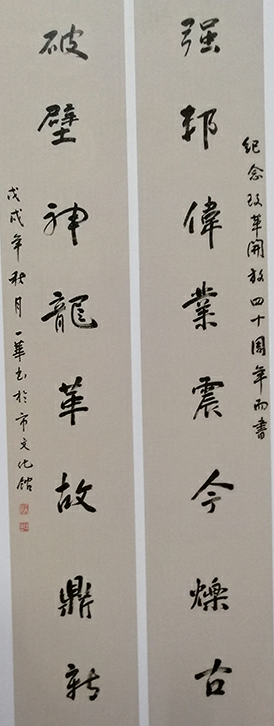 纪念改革開放四十周年而書
强邦偉業震今爍古
破壁神龍革故鼎新
戊戌年秋月一華书於市文化館